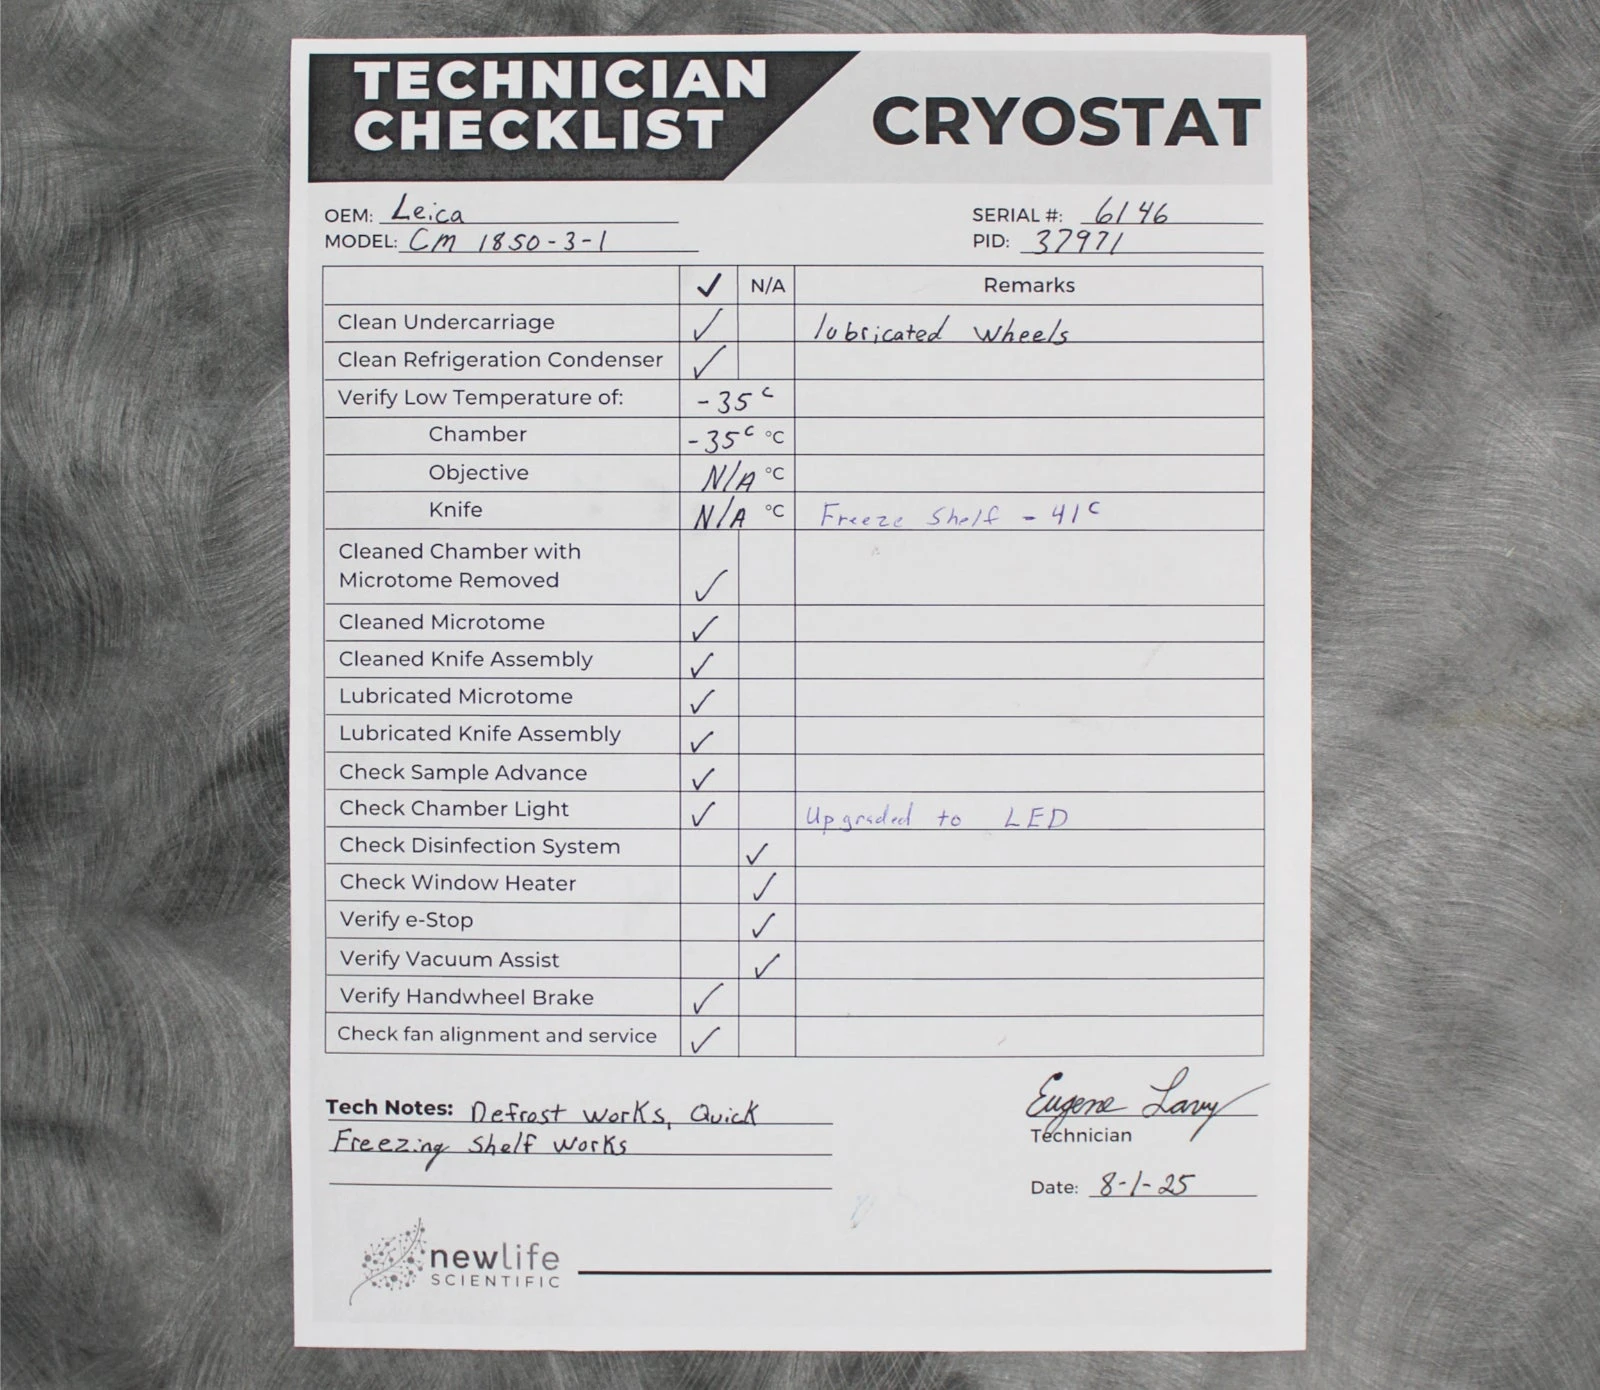 TECHNICIAN
CHECKLIST
CRYOSTAT
OEM: Leica
SERIAL #: 6146
MODEL: CM 1850-3-1
PID: 37971
✓ N/A Remarks
Clean Undercarriage ✓ lubricated wheels
Clean Refrigeration Condenser ✓
Verify Low Temperature of: -35 c
Chamber -35 c °C
Objective N/A °C
Knife N/A °C Freeze Shelf -41 c
Cleaned Chamber with
Microtome Removed ✓
Cleaned Microtome ✓
Cleaned Knife Assembly ✓
Lubricated Microtome ✓
Lubricated Knife Assembly ✓
Check Sample Advance ✓
Check Chamber Light ✓ Upgraded to LED
Check Disinfection System ✓
Check Window Heater ✓
Verify e-Stop ✓
Verify Vacuum Assist ✓
Verify Handwheel Brake ✓
Check fan alignment and service ✓
Tech Notes: Defrost works, Quick
Freezing Shelf works
Eugene
Technician
Date: 8-1-25
newlife
SCIENTIFIC